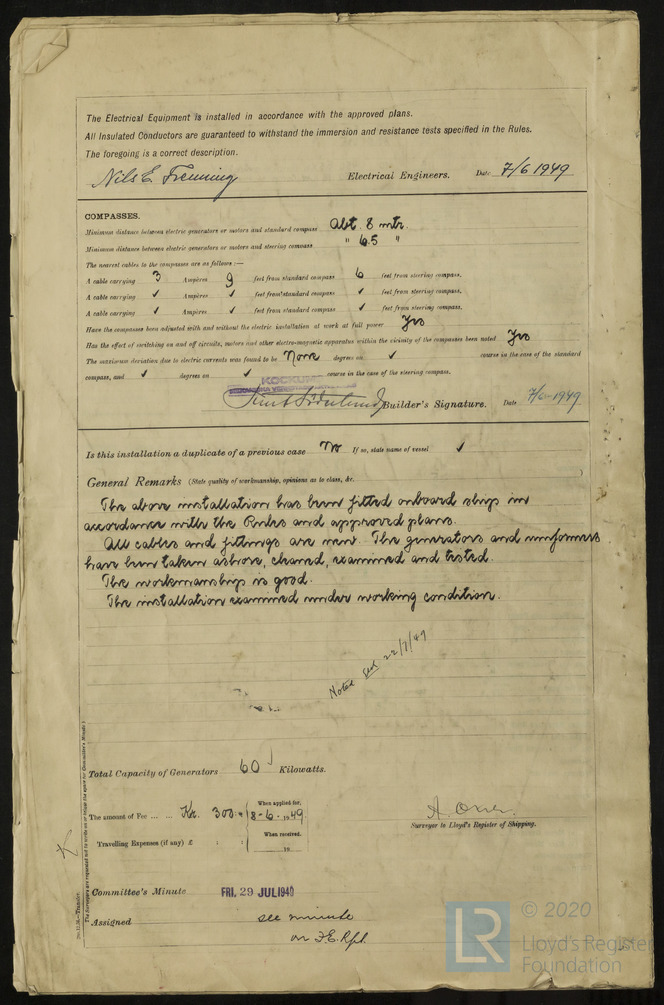 The Electrical Equipment is installed in accordance with the approved plans.
All Insulated Conductors are guaranteed to withstand the immersion and resistance tests specified in the Rules.
The foregoing is a correct description.
Nils E. Electrical Engineers. Date 7/6 1949
COMPASSES.
Minimum distance between electric generators or motors and standard compass Abt. 8 mtr.
Minimum distance between electric generators or motors and steering compass " 6.5 "
The nearest cables to the compasses are as follows:—
A cable carrying 3 Ampères 9 feet from standard compass 6 feet from steering compass.
A cable carrying ✓ Ampères ✓ feet from standard compass ✓ feet from steering compass.
A cable carrying ✓ Ampères ✓ feet from standard compass ✓ feet from steering compass.
Have the compasses been adjusted with and without the electric installation at work at full power Yes
Has the effect of switching on and off circuits, motors and other electro-magnetic apparatus within the vicinity of the compasses been noted Yes
The maximum deviation due to electric currents was found to be None degrees on ✓ course in the case of the standard
compass, and ✓ degrees on ✓ course in the case of the steering compass.
Builder's Signature. Date 7/6 1949
Is this installation a duplicate of a previous case No If so, state name of vessel ✓
General Remarks (State quality of workmanship, opinions as to class, &c.
The above installation has been fitted onboard ship in
accordance with the Rules and approved plans.
All cables and fittings are new. The generators and
have been taken ashore, cleaned, examined and tested.
The workmanship is good.
The installation examined under working condition.
Noted 22/7/49
Total Capacity of Generators 60 Kilowatts.
The amount of Fee ... ... Kr. 300: When applied for, 18-6-1949
Travelling Expenses (if any) £ : : When received, 19
A.
Surveyor to Lloyd's Register of Shipping.
Committee's Minute FRI. 29 JUL 1949
Assigned see minute
on F.E. Rpt.
LR © 2020
Lloyd's Register
Foundation